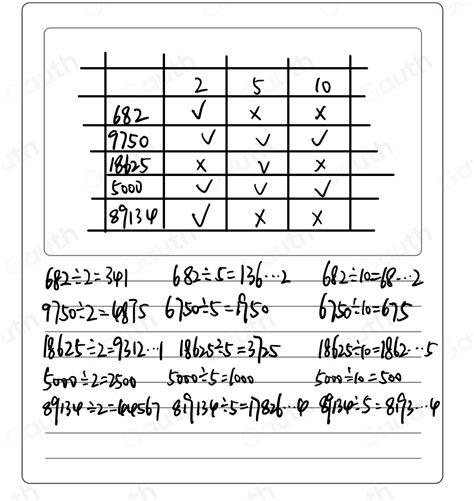 2 5 10
682 ✓ × ×
9750 ✓ ✓ ✓
18625 × ✓ ×
5000 ✓ ✓ ✓
89134 ✓ × ×
682÷2=341 682÷5=136…2 682÷10=68…2
9750÷2=4875 6750÷5=1950 6750÷10=675
18625÷2=9312…1 18625÷5=3725 18625÷10=1862…5
5000÷2=2500 5000÷5=1000 5000÷10=500
89134÷2=44567 89134÷5=17826…4 89134÷5=8913…4